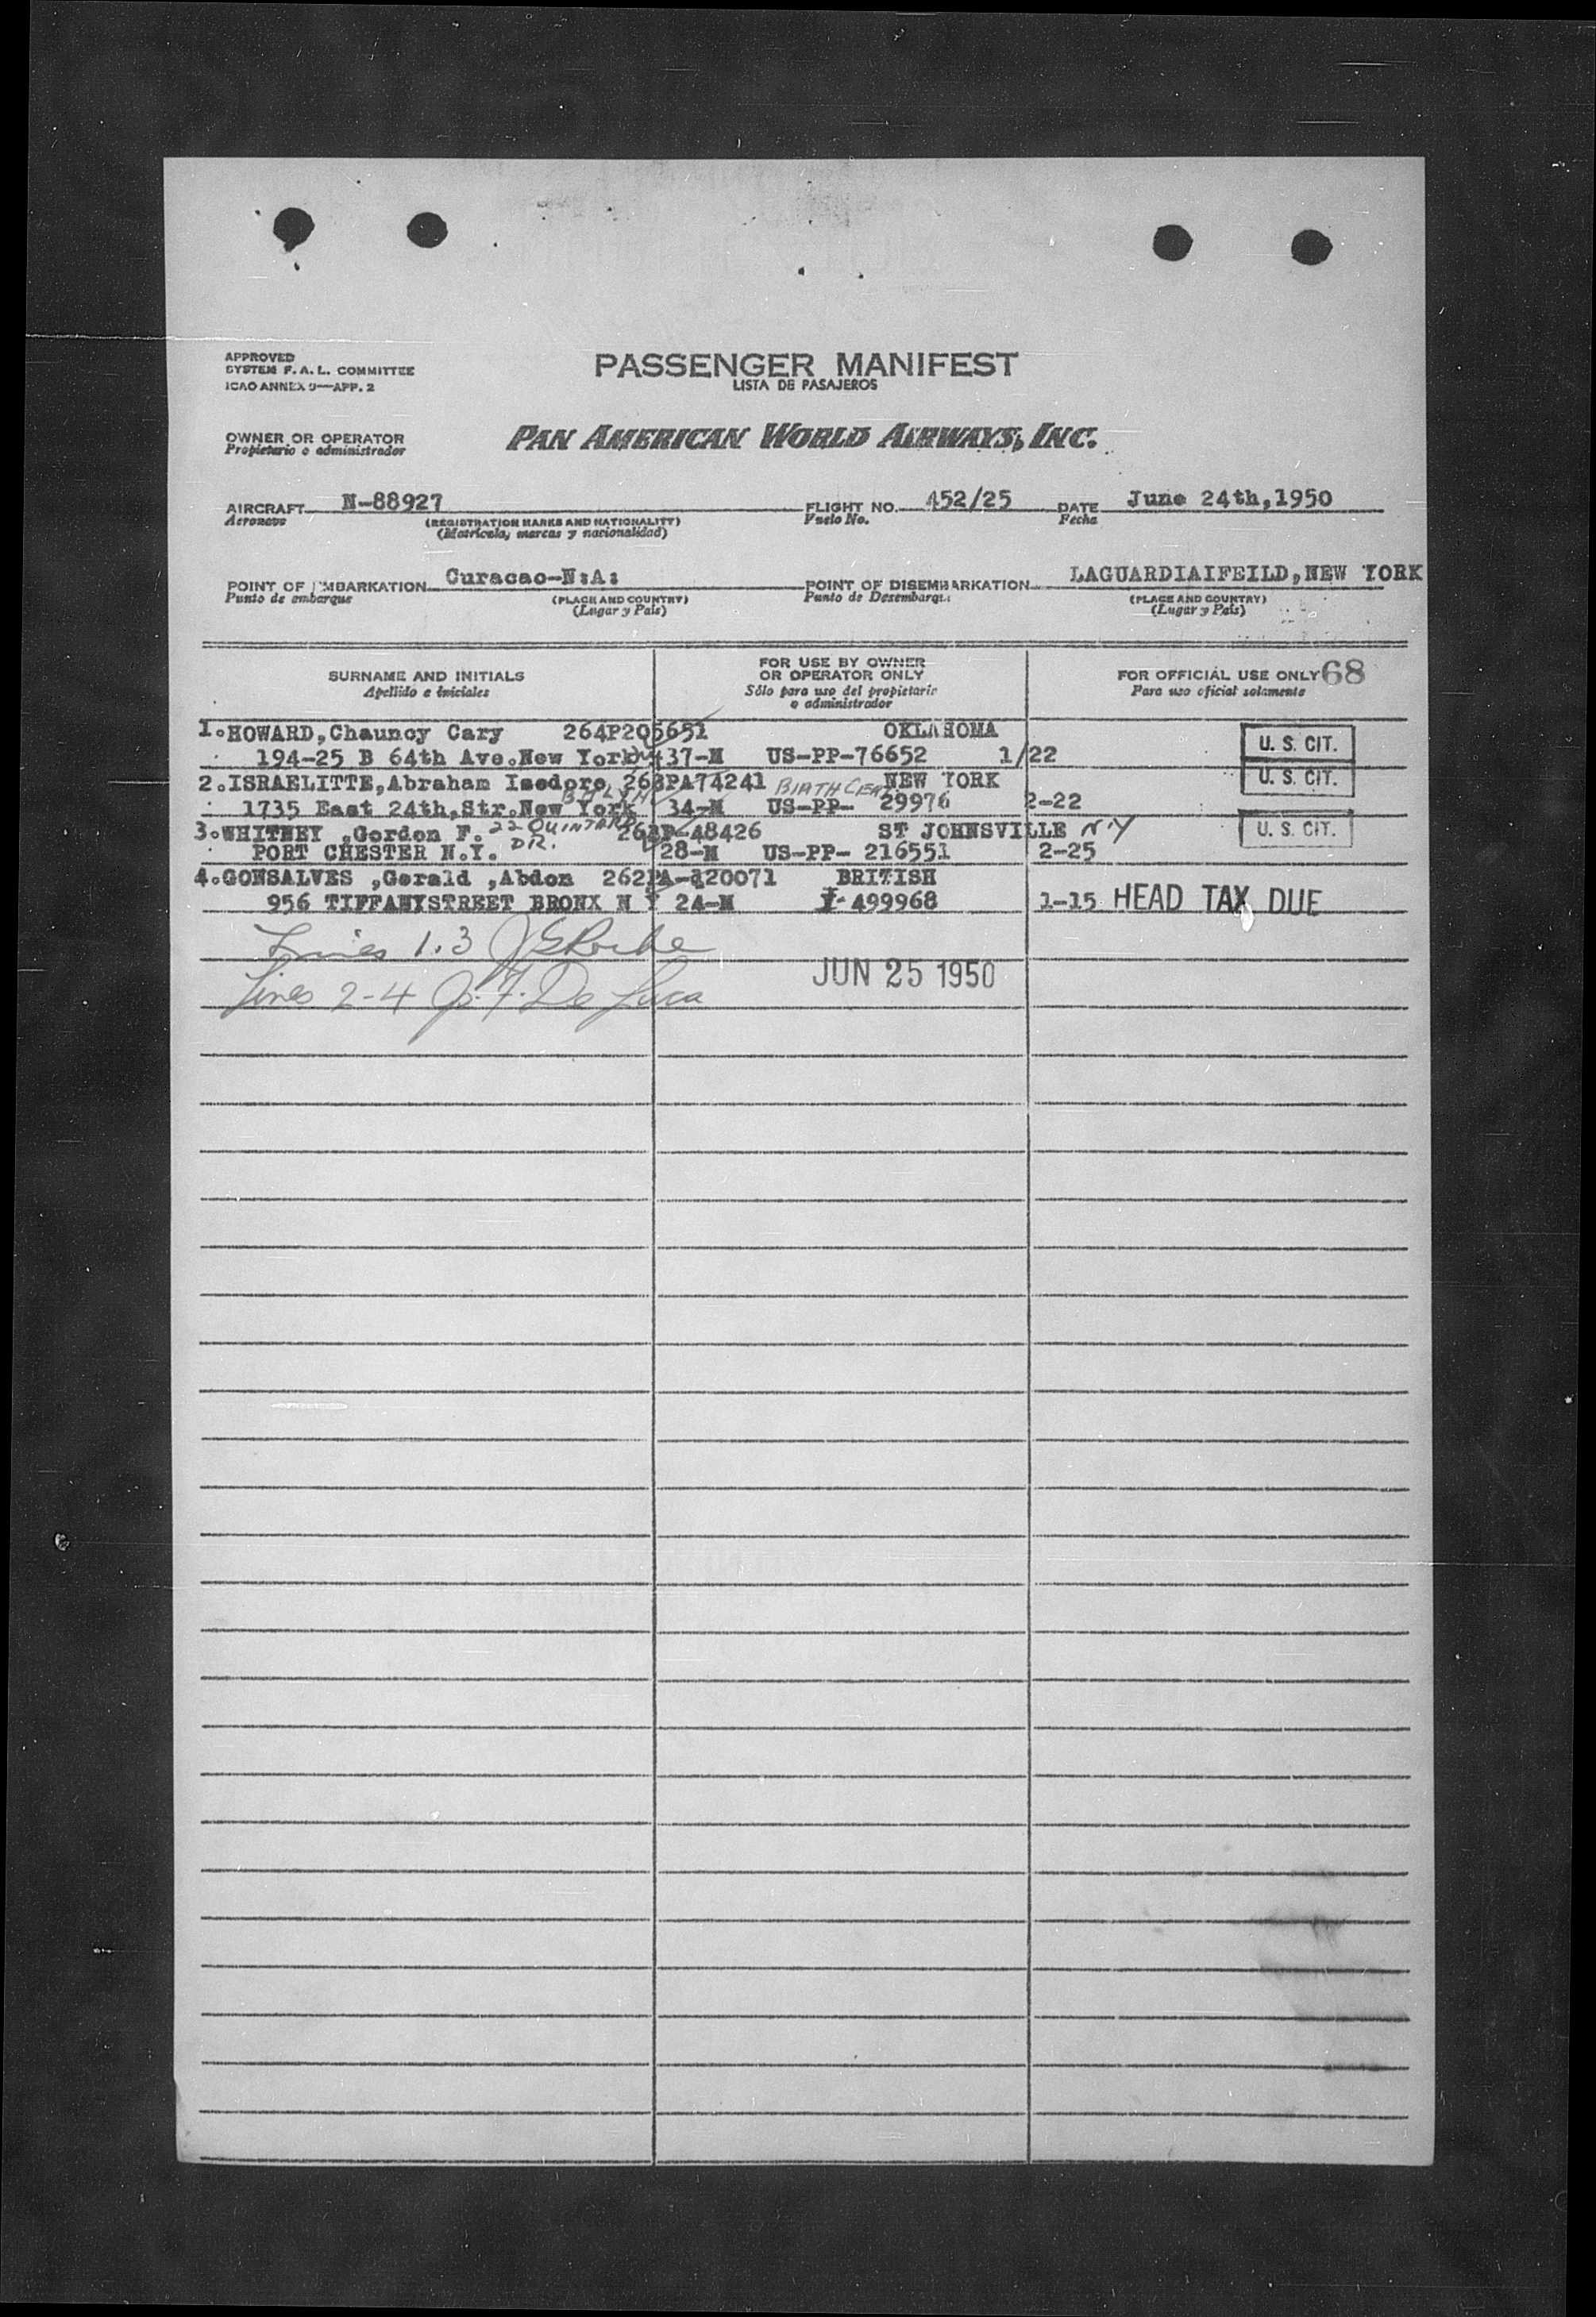 APPROVED
SYSTEM F. A. L. COMMITTEE
ICAO ANNEX 9—APP. 2
PASSENGER MANIFEST
LISTA DE PASAJEROS
OWNER OR OPERATOR
Propietario o administrador
PAN AMERICAN WORLD AIRWAYS, INC.
AIRCRAFT N-88927 FLIGHT NO. 452/25 DATE June 24th,1950
Aeronave (REGISTRATION MARKS AND NATIONALITY) Vuelo No. Fecha
(Matrícula, marcas y nacionalidad)
POINT OF EMBARKATION Curacao-N:A: POINT OF DISEMBARKATION LAGUARDIAIFEILD,NEW YORK
Punto de embarque (PLACE AND COUNTRY) Punto de Desembarque (PLACE AND COUNTRY)
(Lugar y País) (Lugar y País)
SURNAME AND INITIALS FOR USE BY OWNER OR OPERATOR ONLY FOR OFFICIAL USE ONLY 68
Apellido e iniciales Sólo para uso del propietario o administrador Para uso oficial solamente
1.HOWARD,Chauncy Cary 264P205651 OKLAHOMA
194-25 B 64th Ave.New York 37-M US-PP-76652 1/22 U. S. CIT.
2.ISRAELITTE,Abraham Isedore 263PA74241 BIRTH CERT NEW YORK U. S. CIT.
1735 East 24th,Str.New York 34-M US-PP- 29976 2-22
3.WHITNEY ,Gordon F. 22 QUINTARD 263P-48426 ST JOHNSVILLE N.Y U. S. CIT.
PORT CHESTER N.Y. DR. 28-M US-PP- 216551 2-25
4.GONSALVES ,Gerald ,Abdon 262PA-120071 BRITISH
956 TIFFANYSTREET BRONX N Y 24-M I-499968 1-15 HEAD TAX DUE
Lines 1.3
Lines 2-4 De Luca JUN 25 1950